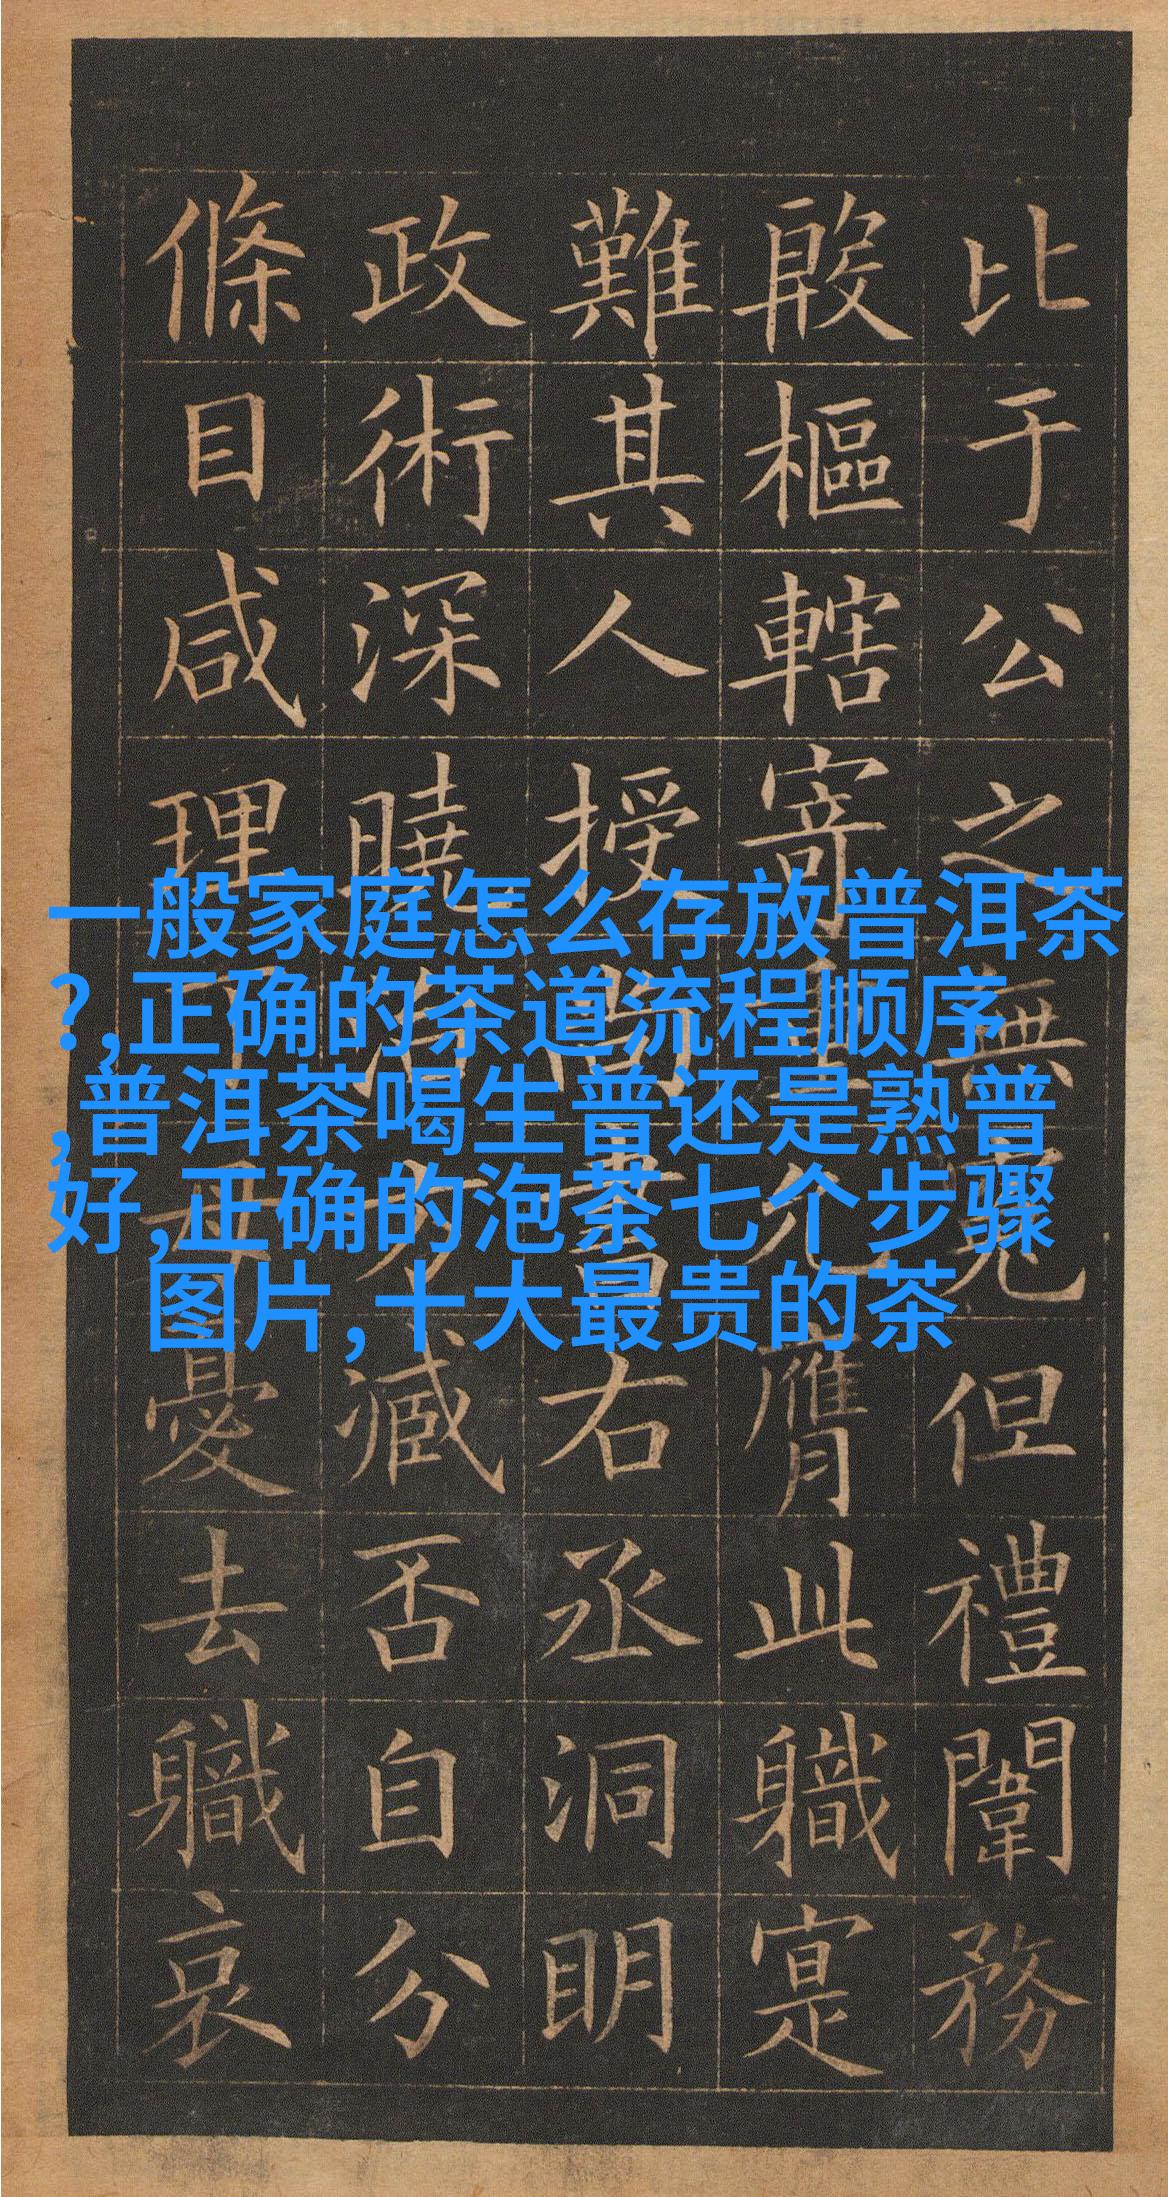 比于公之無但禮闈務
殷樞轄寄重允膺此職寔
難其人授尚書右丞洞明
政術深曉治方臧否自分
條目咸理丁母憂去職哀
一般家庭怎么存放普洱茶
?,正确的茶道流程顺序
,普洱茶喝生普还是熟普
好,正确的泡茶七个步骤
图片,十大最贵的茶